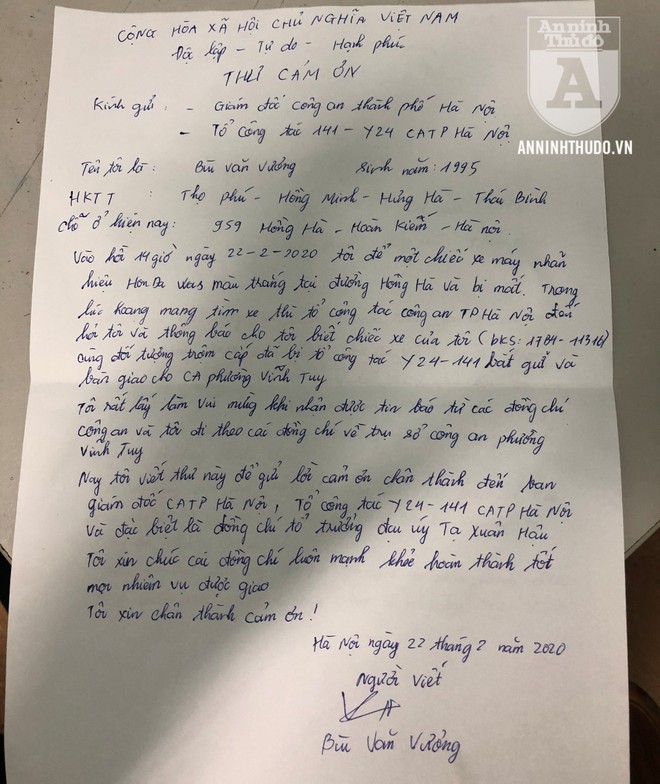 An ninh
Thủ đô
A
ANNINHTHUDO.VN
CỘNG HÒA XÃ HỘI CHỦ NGHĨA VIỆT NAM
Độc lập - Tự do - Hạnh phúc
THƯ CẢM ƠN
Kính gửi : - Giám đốc công an thành phố Hà Nội
- Tổ công tác 141 - Y24 CATP Hà Nội
Tên tôi là : Bùi Văn Vương Sinh năm : 1995
HKTT : Thọ phú - Hồng Minh - Hưng Hà - Thái Bình
Chỗ ở hiện nay : 959 Hồng Hà - Hoàn Kiếm - Hà nội
Vào hồi 14 giờ ngày 22-2-2020 tôi để một chiếc xe máy nhãn
hiệu HonDa màu trắng tại đường Hồng Hà và bị mất. Trong
lúc hoang mang tìm xe thì tổ công tác công an TP Hà Nội đến
hỏi tôi và thông báo cho tôi biết chiếc xe của tôi (BKS: 17B4-11316)
cùng đối tượng trộm cắp đã bị tổ công tác Y24-141 bắt giữ và
bàn giao cho CA phường Vĩnh Tuy
Tôi rất lấy làm vui mừng khi nhận được tin báo từ các đồng chí
công an và tôi đi theo các đồng chí về trụ sở công an phường
Vĩnh Tuy
Nay tôi viết thư này để gửi lời cảm ơn chân thành đến ban
giám đốc CATP Hà Nội, Tổ công tác Y24-141 CATP Hà Nội
và đặc biệt là đồng chí tổ trưởng đại úy Tạ Xuân Hậu
Tôi xin chúc các đồng chí luôn mạnh khỏe hoàn thành tốt
mọi nhiệm vụ được giao
Tôi xin chân thành cảm ơn !
Hà Nội ngày 22 tháng 2 năm 2020
Người viết
Bùi Văn Vương